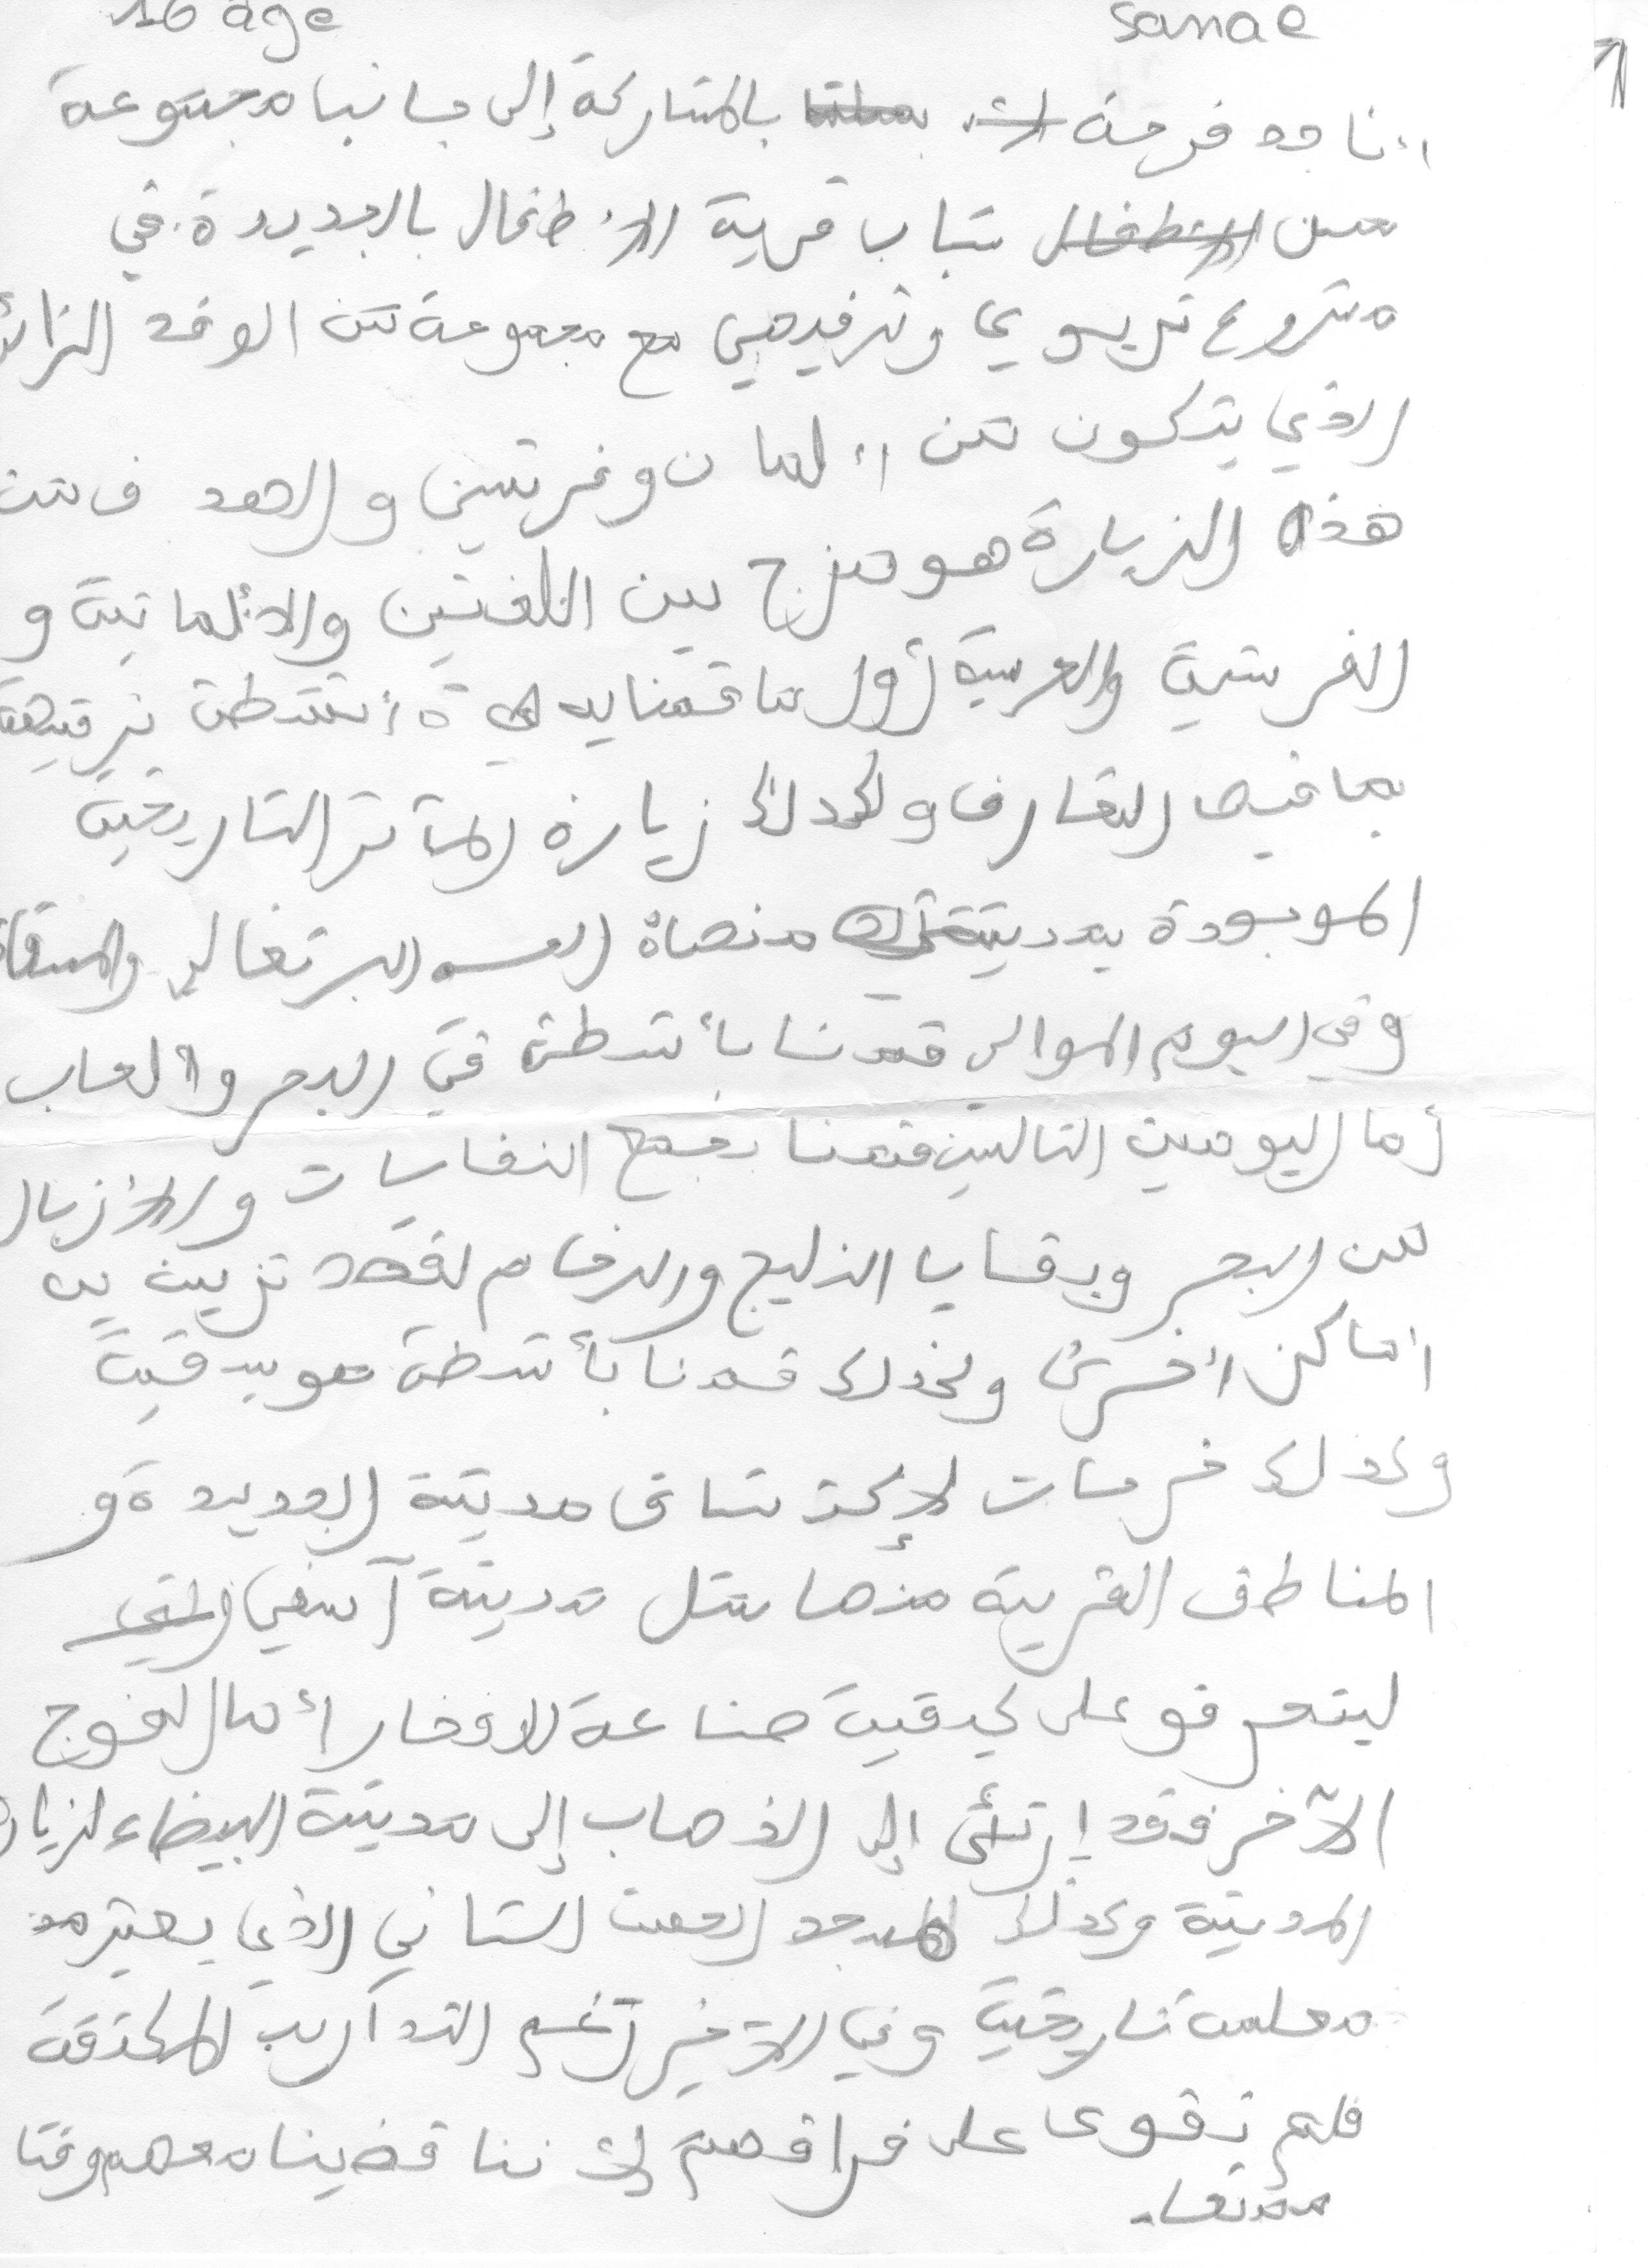 sanae 16 age
أنا جد فرحة بالمشاركة إلى جانبا مجموعة
من شباب قرية الأطفال بالجديدة. في
مشروع تربوي وترفيهي مع مجموعة من الوفد الزائر
الذي يتكون من ألمان وفرنسين والهدف من
هذه الزيارة هو مزج بين اللغتين والألمانية و
الفرنسية والعربية أول ما قمنا به أنشطة ترفيهية
بما فيها التعارف وكذلك زيارة المآثر التاريخية
الموجودة بمدينة البرتغالي
وفي اليوم الموالي قمنا بأنشطة في البحر وألعاب
أما اليومين التاليين قمنا بجمع النفايات والأزبال
من البحر وبقايا الزليج والرخام لقصد تزيين به
أماكن أخرى وكذلك قمنا بأنشطة موسيقية
وكذلك خرجات لإكتشاف مدينة الجديدة و
المناطق القريبة منها مثل مدينة آسفي
ليتعرفو على كيفية صناعة الفخار أما الفوج
الآخر فقد إرتئى إلى الذهاب إلى مدينة البيضاء لزيارة
المدينة وكذلك المسجد الحسن الثاني الذي يعتبر
معلمة تاريخية وفي الأخير
فلم نقوى على فراقهم لأننا قضينا معهم وقتا
ممتعا.